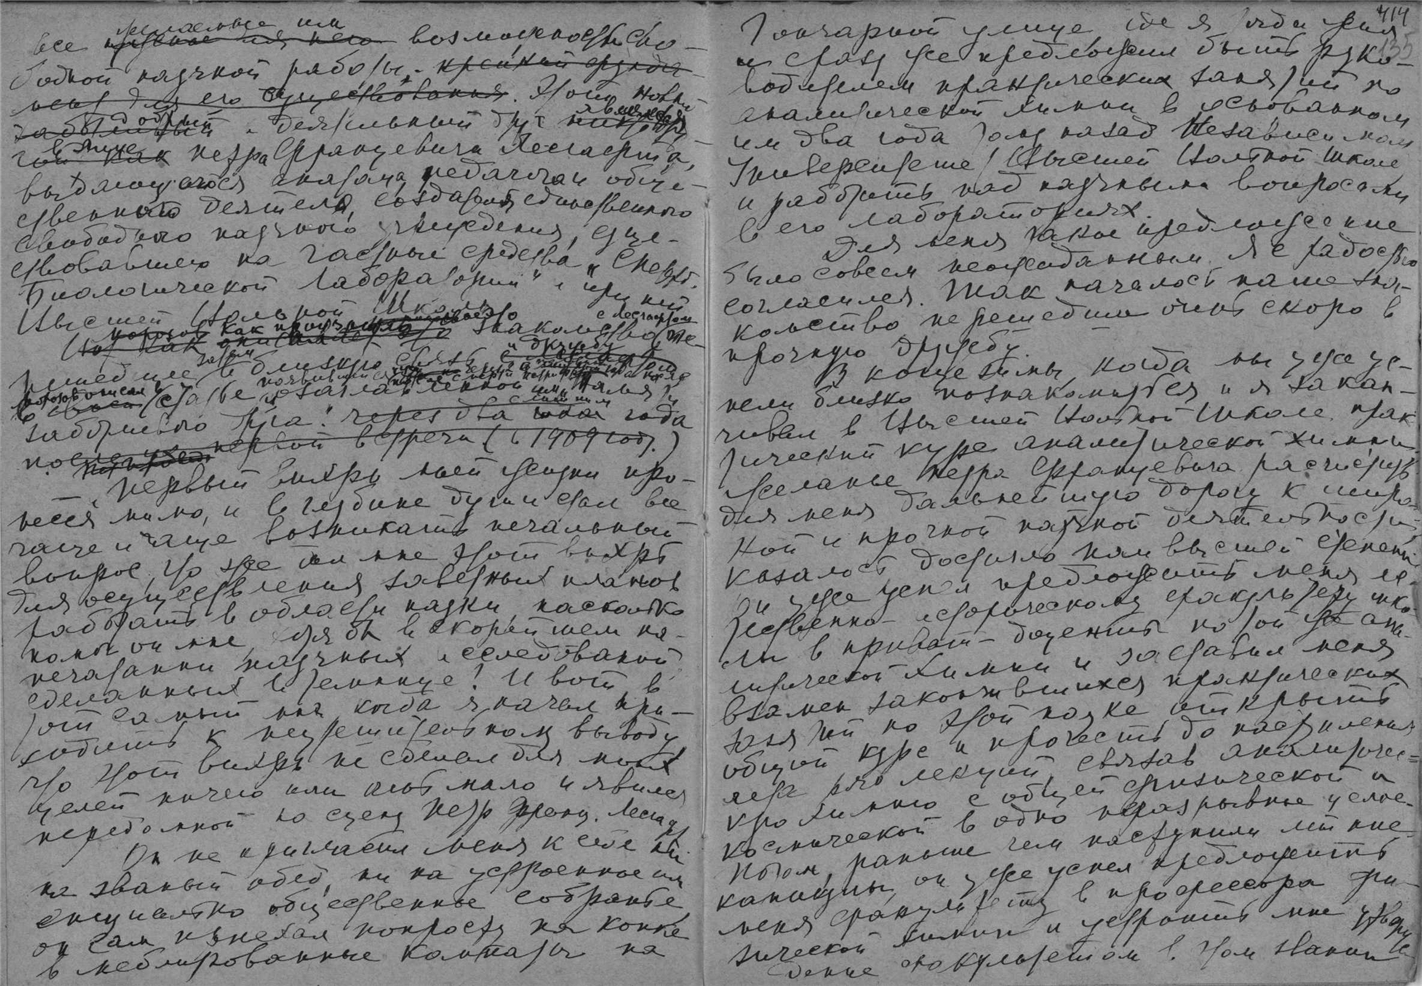 желаемые или
все нужные для него возможности сво-
бодной научной работы.
для его существования. Этой
добрый и деятельный друг явился
в лице Петра Францевича Лесгафта,
выдающегося анатома, педагога и обще-
ственного деятеля, создателя единственного
свободного научного учреждения, суще-
ствовавшего на частные средства „С.петерб.
Биологической Лаборатории“ и при ней
Высшей Вольной Школы
знакомство с Лесгафтом
перешедшее затем в близкую связь и дружбу
в статье озаглавленной
заботливого друга: через два года
после первой встречи (в 1909 году.)
„Первый вихрь моей жизни про-
несся мимо, и в глубине души стал все
чаще и чаще возникать печальный
вопрос, что же дал мне этот вихрь
для осуществления заветных планов
работать в области науки, насколько
помог он мне хотя бы в скорейшем на-
печатании научных исследований,
сделанных в темнице? И вот в
тот самый миг когда я начал при-
ходить к неутешительному выводу,
что этот вихрь не сделал для моих
целей ничего или очень мало и явился
передо мной на сцену Петр Франц. Лесгафт.
Он не пригласил меня к себе ни
на званый обед, ни на устроенное им
специально общественное собрание
он сам приехал попросту на конке
в меблированные комнаты на
414
135
Гончарной улице где я тогда жил
и сразу же предложил быть руко-
водителем практических занятий по
аналитической химии в основанном
им два года тому назад Независимом
Университете (Высшей Вольной Школе
и работать над научными вопросами
в его лабораториях.
Для меня такое предложение
было совсем неожиданным. Я с радостью
согласился. Так началось наше зна-
комство перешедшее очень скоро в
прочную дружбу.
В конце зимы, когда мы уже ус-
пели близко познакомиться и я закан-
чивал в Высшей Вольной Школе прак-
тический курс аналитической химии
желанье Петра Францевича расчистить
для меня дальнейшую дорогу к широ-
кой и прочной научной деятельности,
казалось достигло наивысшей степени
Он уже успел предложить меня ес-
тественно-историческому факультету шко-
лы в приват-доценты по той же ана-
литической химии и заставил меня
взамен закончившихся практических
занятий по этой науке открыть
общий курс и прочесть до наступления
лета ряд лекций, связав аналитичес-
кую химию с общей физической и
космической в одно неразрывное целое.
Потом, раньше чем наступили летние
каникулы, он уже успел предложить
меня факультету в профессора фи-
зической химии и устроить мне утверж-
дение факультетом в этом звании